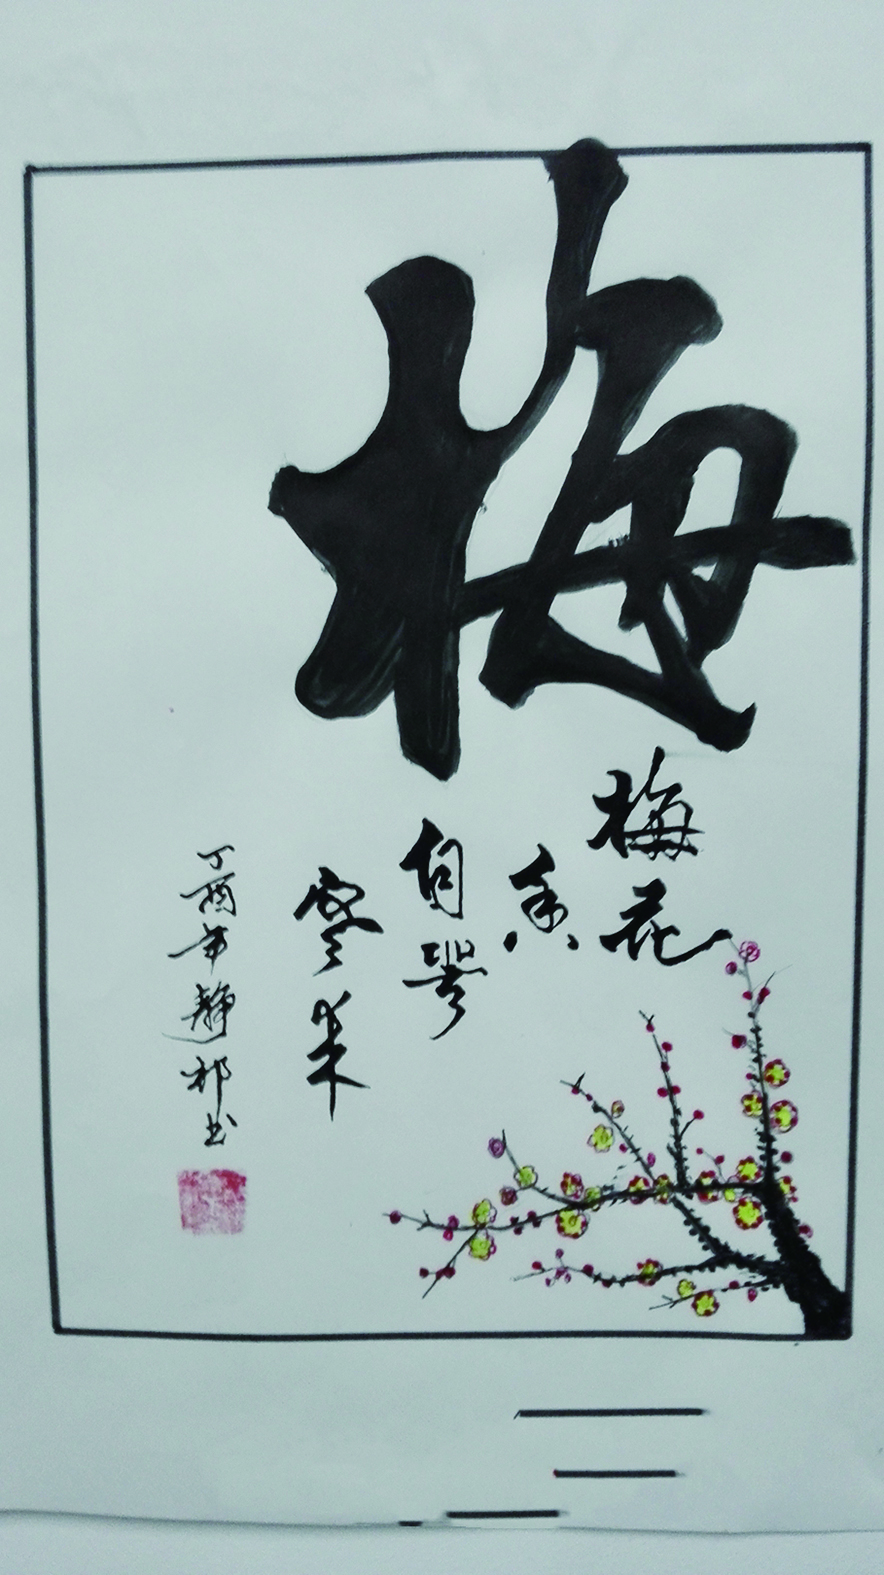 梅
梅花
香
自苦
寒来
丁酉年静祁书